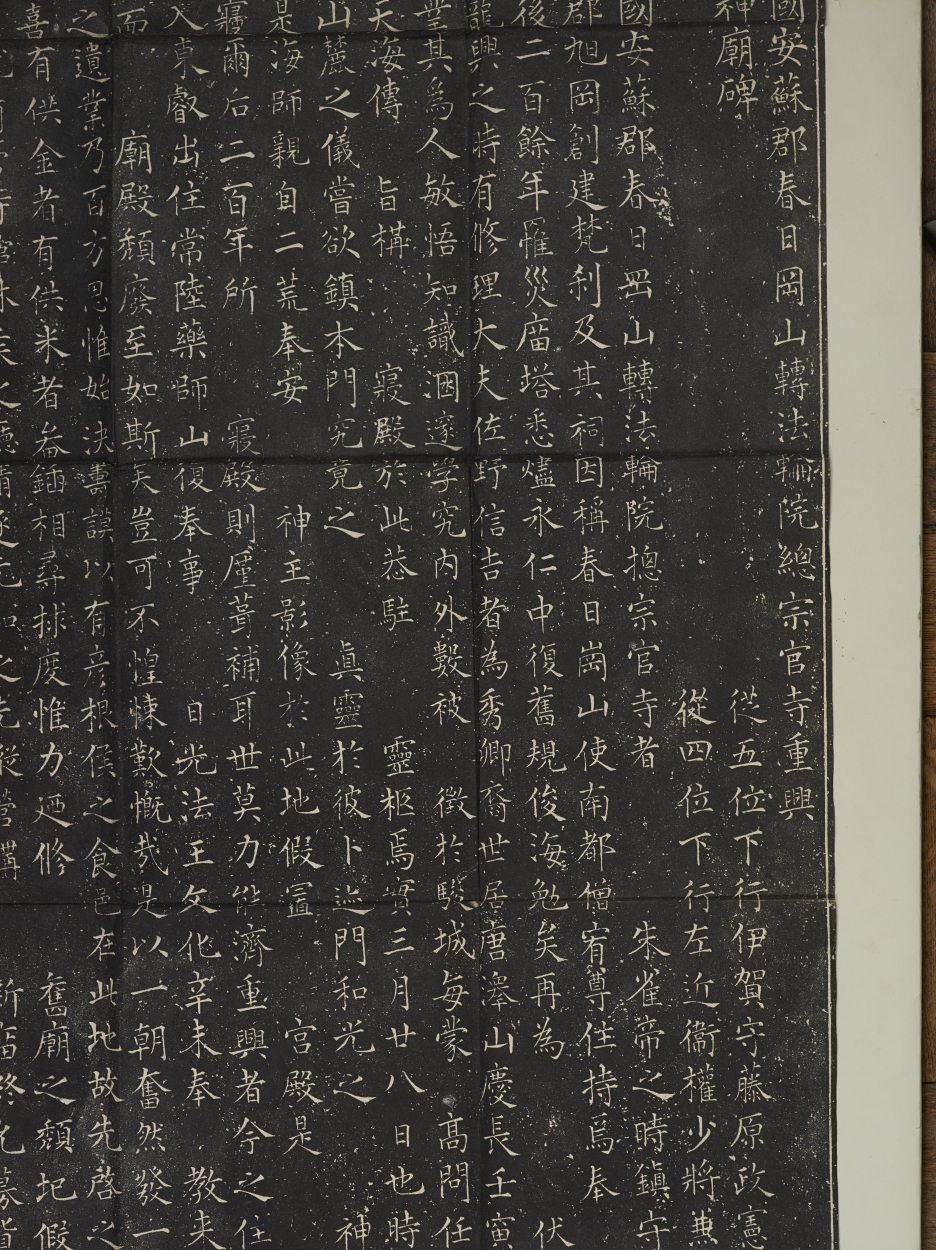 國安蘇郡春日岡山轉法輪院總宗官寺重興
神廟碑
從五位下行伊賀守藤原政憲
從四位下行左近衞權少將兼
國安蘇郡春日岡山轉法輪院揔宗官寺者 朱雀帝之時鎮守
郡旭岡創建梵刹及其祠因稱春日崗山使南都僧宥尊住持焉奉
後二百餘年罹災廟塔悉燼永仁中復舊規俊海勉矣再為 伏
龍興之時有修理大夫佐野信吉者為秀卿裔世居唐澤山慶長壬寅
豐其為人敏悟知識洄邃学究内外數被 徵於駿城每蒙 高問任
天海傳 旨構 寢殿於此恭駐 靈柩焉實三月廿八日也時
山麓之儀嘗欲鎮本門究竟之 眞靈於彼卜迹門和光之 神
是海師親自二荒奉安 神主影像於此地假置 宫殿是
寢爾后二百年所 寢殿則廑葺補耳世莫力能濟重興者今之住
入東叡出住常陸藥師山復奉事 日光法王文化辛未奉 教来
而 廟殿頹廢至如斯矣豈可不惶悚歎慨哉是以一朝奮然發一
之遺業乃百方思惟始决書謨以有彦根侯之食邑在此地故先啓之
喜有供金者有供米者畚鍤相尋捄度惟力廼修 舊廟之頹圯假